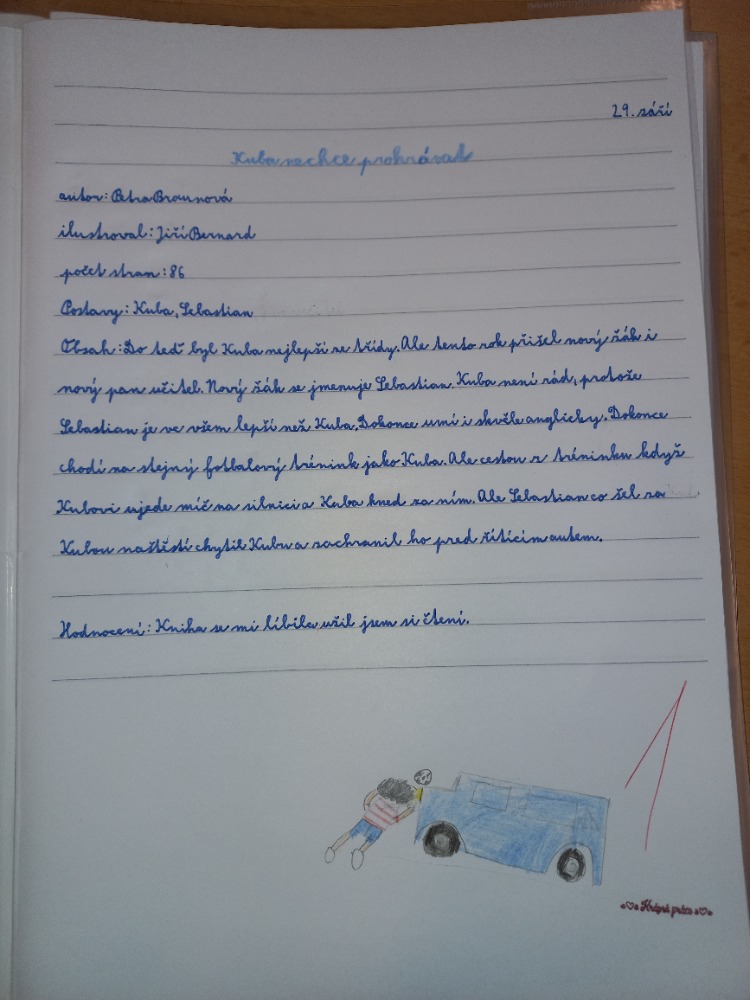 29. září
Kuba nechce prohrávat
autor: Petra Braunová
ilustroval: Jiří Bernard
počet stran: 86
Postavy: Kuba, Sebastian
Obsah: Do teď byl Kuba nejlepší ze třídy. Ale tento rok přišel nový žák i
nový pan učitel. Nový žák se jmenuje Sebastian. Kuba není rád, protože
Sebastian je ve všem lepší než Kuba. Dokonce umí i skvěle anglicky. Dokonce
chodí na stejný fotbalový trénink jako Kuba. Ale cestou z tréninku když
Kubovi ujede míč na silnici a Kuba hned za ním. Ale Sebastian co šel za
Kubou naštěstí chytil Kubu a zachranil ho před řítícím autem.
Hodnocení: Kniha se mi líbila užil jsem si čtení.
1
Krásná práce